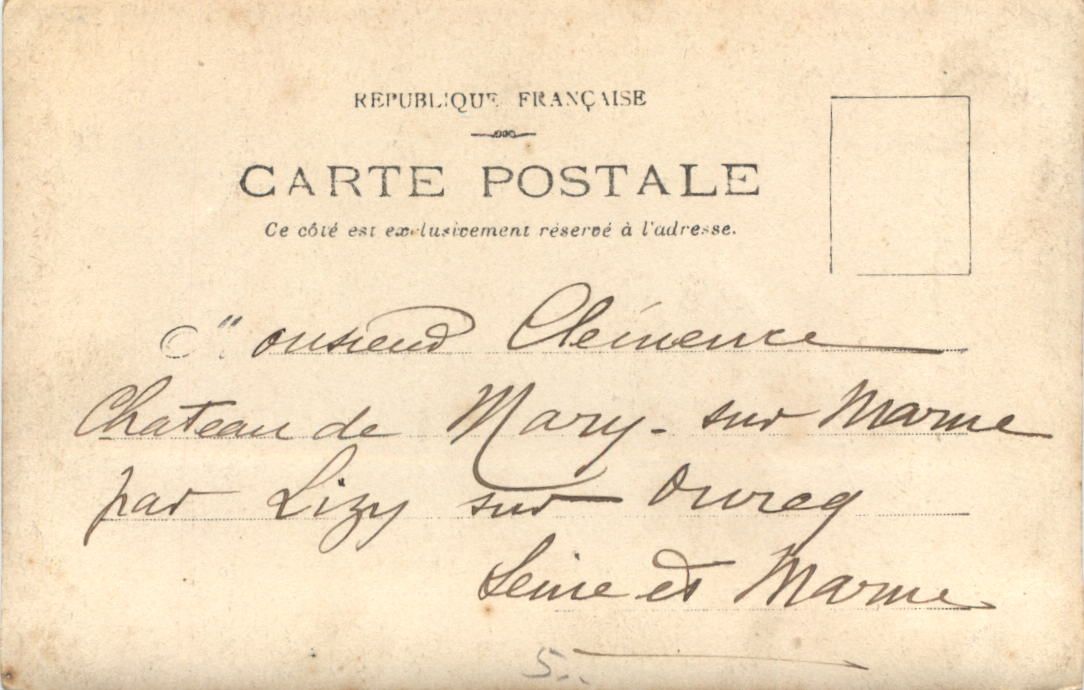 REPUBLIQUE FRANÇAISE
CARTE POSTALE
Ce côté est exclusivement réservé à l'adresse.
Monsieur Clémence
Chateau de Mary-sur Marne
par Lizy sur Ourcq
Seine et Marne
5